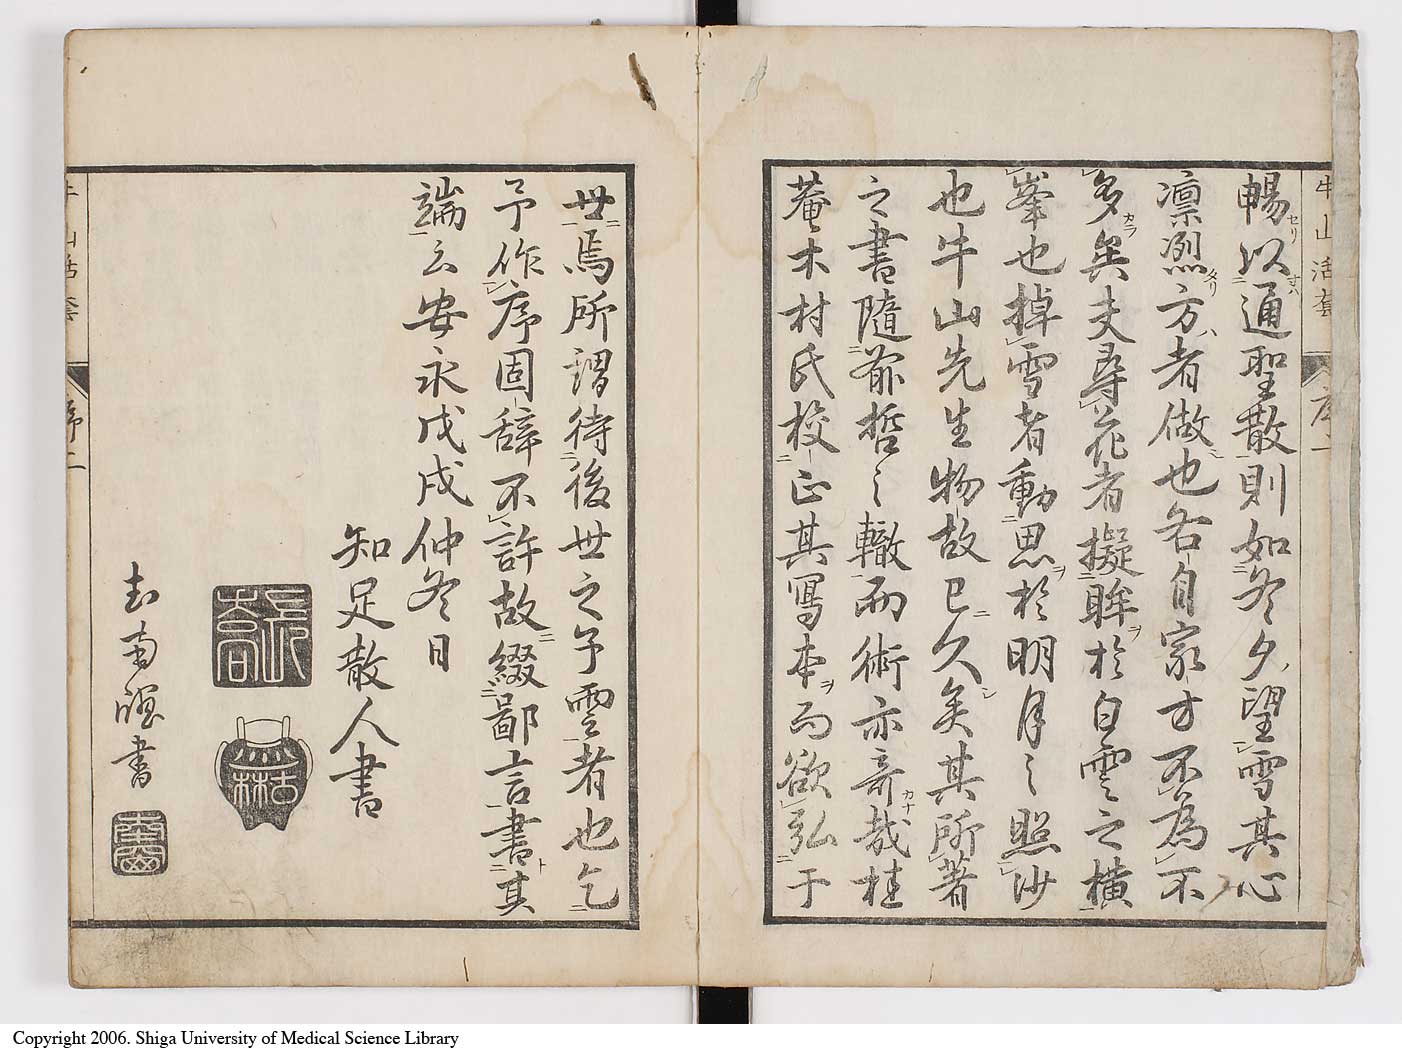 牛山活套
序二
暢セリ以スハ通聖散則如冬夕望雪其心
凛冽タリ方ハ者倣也各自家才不為不
多カラ矣夫尋花者擬眸ヲ於白雲之横
峯也掉雪者動思ヲ於明月之照沙
也牛山先生物故已ニ久シ矣其所著
之書随前哲之轍而術亦奇ナ哉カ桂
菴木村氏校正其写本ヲ而欲弘于
世ニ焉所謂待後世之子雲者也乞
予作序固辞不許故ニ綴鄙言書其ト
端云安永戊戌仲冬日
知足散人書
南
書
牛山活套
序二
Copyright 2006. Shiga University of Medical Science Library